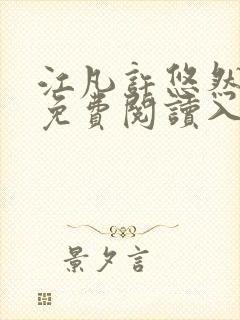 江凡許悠然
免費閱讀入
景夕言